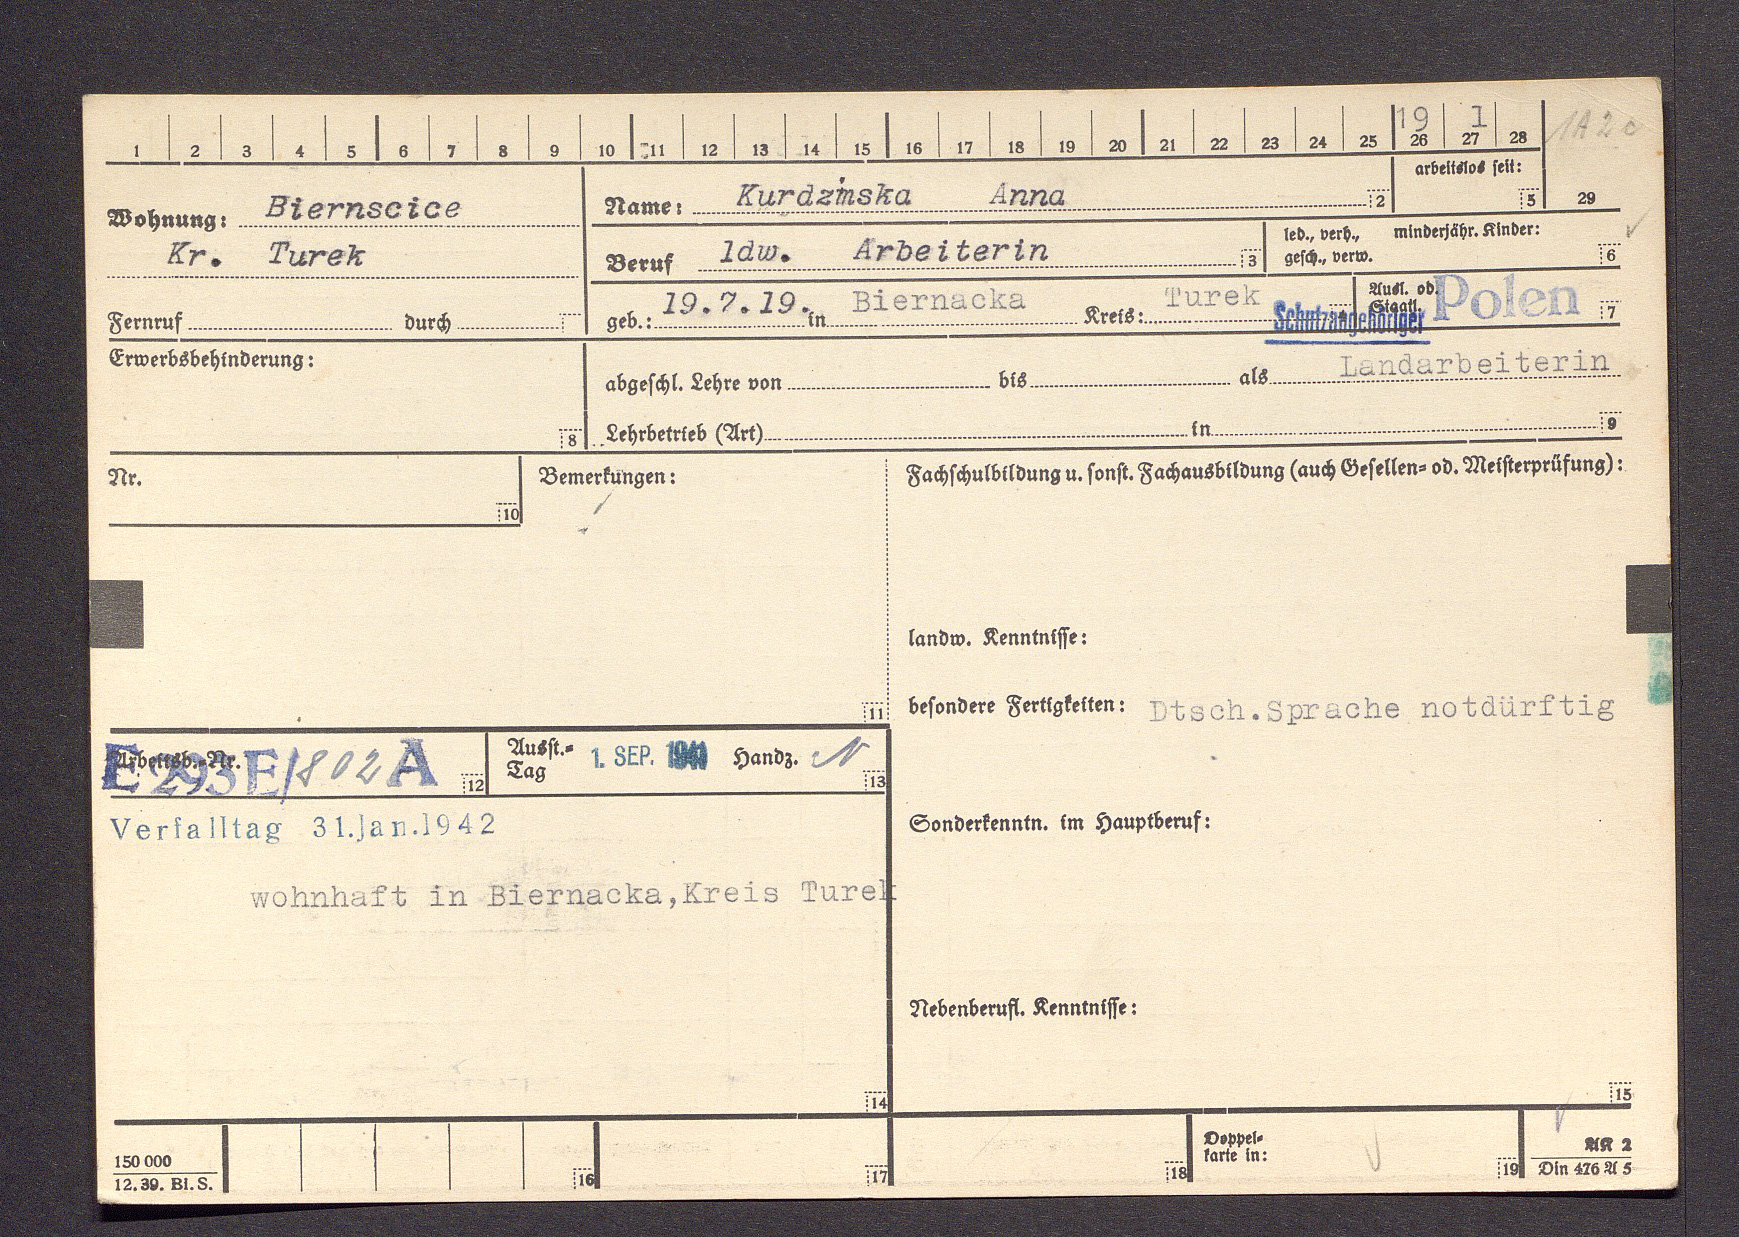 1 2 3 4 5 6 7 8 9 10 11 12 13 14 15 16 17 18 19 20 21 22 23 24 25 26 27 28
19 1 1A2c
arbeitslos seit: 5 29
Wohnung: Biernscice
Kr. Turek
Name: Kurdzinska Anna 2
Beruf ldw. Arbeiterin 3
led., verh., gesch., verw.
minderjähr. Kinder: 6
Fernruf durch
geb.: 19.7.19. in Biernacka Kreis: Turek 4
Schutzangehöriger
Ausl. od. Staatl. Polen 7
Erwerbsbehinderung: 8
abgeschl. Lehre von bis als Landarbeiterin
Lehrbetrieb (Art) in 9
Nr. 10
Bemerkungen: 11
Fachschulbildung u. sonst. Fachausbildung (auch Gesellen- od. Meisterprüfung):
landw. Kenntnisse:
besondere Fertigkeiten: Dtsch.Sprache notdürftig
Arbeitsb.-Nr. E 293 E/802 A 12
Ausst.-Tag 1. SEP. 1941 Handz. 13
Verfalltag 31.Jan.1942
wohnhaft in Biernacka,Kreis Turek
14
Sonderkenntn. im Hauptberuf:
Nebenberufl. Kenntnisse:
15
150 000
12. 39. Bl. S.
16 17 18
Doppel-
karte in: 19
AK 2
Din 476 A 5